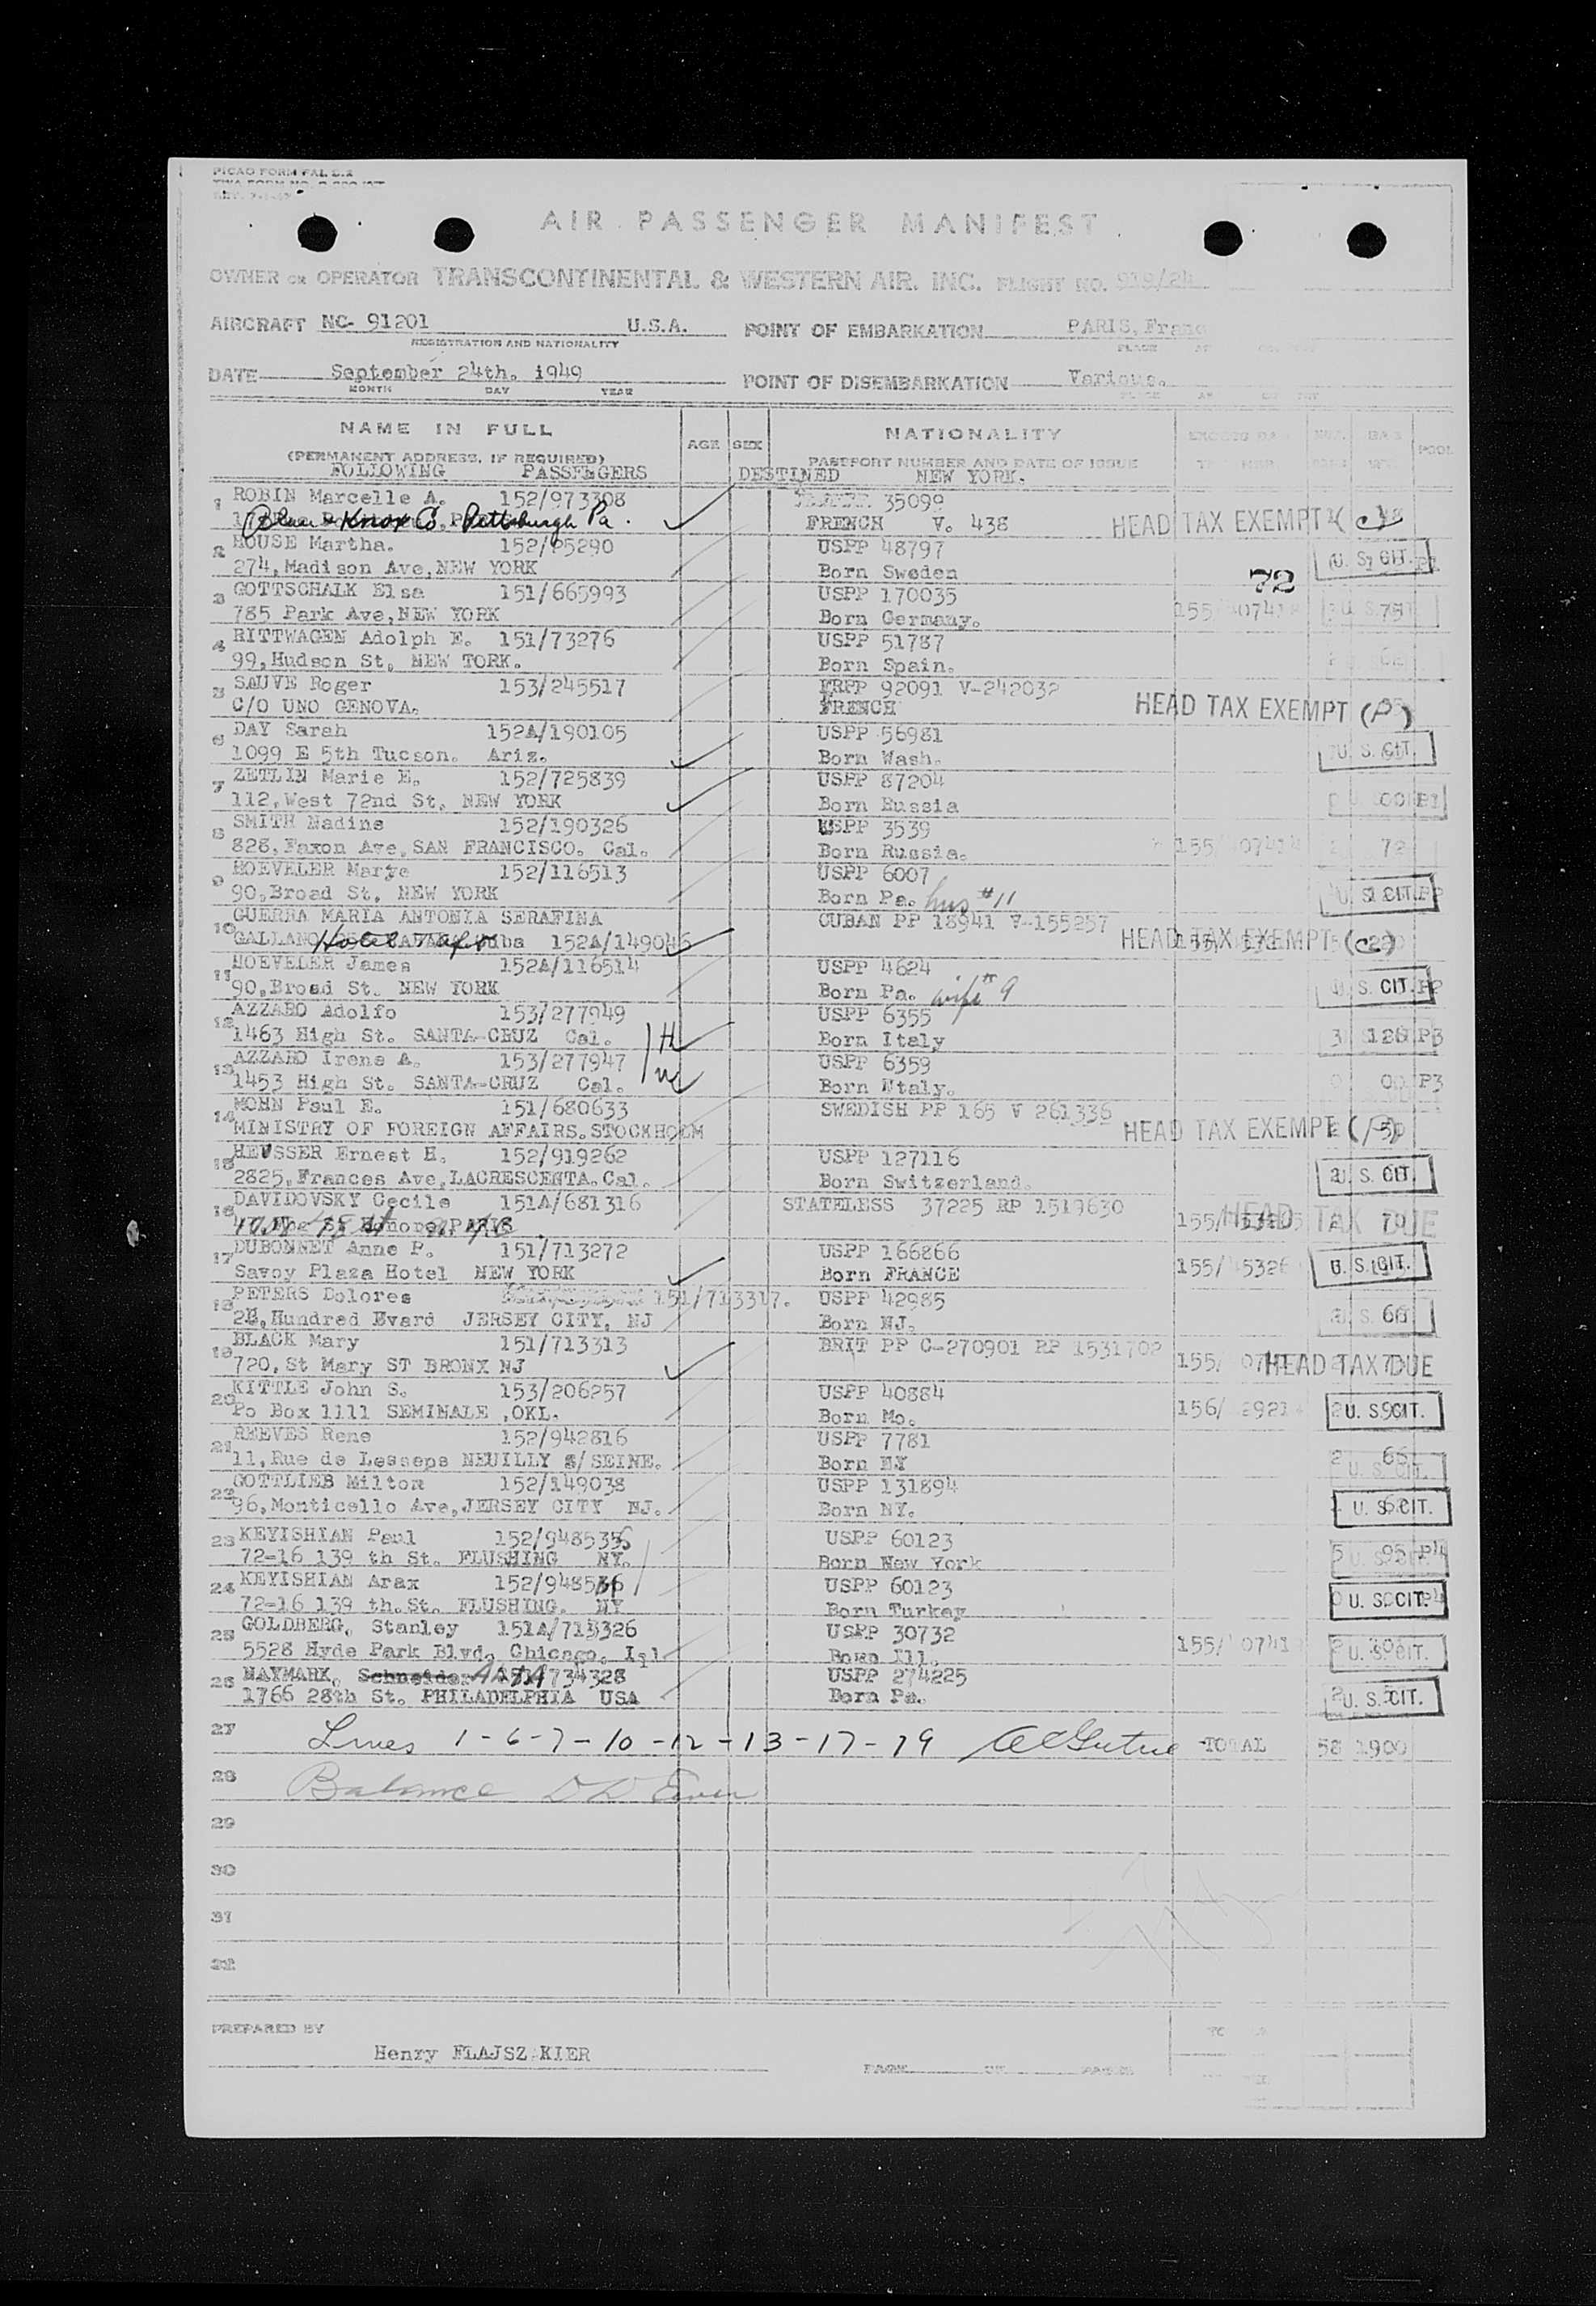 PICAO FORM FAL 2.2
AIR PASSENGER MANIFEST
OWNER OR OPERATOR TRANSCONTINENTAL & WESTERN AIR. INC. FLIGHT NO. 919/24
AIRCRAFT NC- 91201 U.S.A. POINT OF EMBARKATION PARIS, Franc
REGISTRATION AND NATIONALITY PLACE
DATE September 24th. 1949 POINT OF DISEMBARKATION Various.
MONTH DAY YEAR PLACE
NAME IN FULL AGE SEX NATIONALITY
(PERMANENT ADDRESS, IF REQUIRED) PASSPORT NUMBER AND DATE OF ISSUE POOL
FOLLOWING PASSENGERS DESTINED NEW YORK.
1 ROBIN Marcelle A. 152/973308 35099
Knox Co Pittsburgh Pa. FRENCH V. 438 HEAD TAX EXEMPT (c)
2 HOUSE Martha. 152/95290 USPP 48797
274, Madison Ave, NEW YORK Born Sweden U. S. CIT.
72
3 GOTTSCHALK Elsa 151/665993 USPP 170035
785 Park Ave, NEW YORK Born Germany. 155/ 0741
4 RITTWAGEN Adolph E. 151/73276 USPP 51787
99, Hudson St, NEW TORK. Born Spain.
5 SAUVE Roger 153/245517 FRPP 92091 V-242032
C/O UNO GENOVA. FRENCH HEAD TAX EXEMPT (P)
6 DAY Sarah 152A/190105 USPP 56981
1099 E 5th Tucson. Ariz. Born Wash. U. S. CIT.
7 ZETLIN Marie E. 152/725839 USPP 87204
112, West 72nd St, NEW YORK Born Russia
8 SMITH Nadine 152/190326 USPP 3539
828, Faxon Ave, SAN FRANCISCO. Cal. Born Russia. 155/ 07414 2 72
9 HOEVELER Marye 152/116513 USPP 6007
90, Broad St. NEW YORK Born Pa. hus #11 U. S. CIT. P2
10 GUERRA MARIA ANTONIA SERAFINA CUBAN PP 18941 V-155257
GALLANO Hotel Taft Cuba 152A/149046 HEAD TAX EXEMPT (c)
11 HOEVELER James 152A/116514 USPP 4624
90, Broad St. NEW YORK Born Pa. wife #9 U. S. CIT. P2
12 AZZARO Adolfo 153/277949 USPP 6355
1463 High St. SANTA-CRUZ Cal. H Born Italy 3 P3
13 AZZARO Irene A. 153/277947 USPP 6359
1453 High St. SANTA-CRUZ Cal. W Born Ntaly. 0 00 P3
14 MOHN Paul E. 151/680633 SWEDISH PP 165 V 261336
MINISTRY OF FOREIGN AFFAIRS. STOCKHOLM HEAD TAX EXEMPT
15 HEUSSER Ernest H. 152/919262 USPP 127116
2825, Frances Ave, LACRESCENTA. Cal. Born Switzerland. U. S. CIT.
16 DAVIDOVSKY Cecile 151A/681316 STATELESS 37225 RP 1519630
St Honore PARIS 155/ HEAD TAX DUE
17 DUBONNET Anne P. 151/713272 USPP 166866
Savoy Plaza Hotel NEW YORK Born FRANCE 155/ 5326 U. S. CIT.
18 PETERS Dolores 151/713317. USPP 42985
28, Hundred Evard JERSEY CITY, NJ Born NJ.
19 BLACK Mary 151/713313 BRIT PP C-270901 RP 1531702
720, St Mary ST BRONX NJ 155/ HEAD TAX DUE
20 KITTLE John S. 153/206257 USPP 40884
Po Box 1111 SEMINALE ,OKL. Born Mo. 156/ 2921 U. S. CIT.
21 REEVES Rene 152/942816 USPP 7781
11, Rue de Lesseps NEUILLY S/SEINE. Born NY
22 GOTTLIEB Milton 152/149038 USPP 131894
96, Monticello Ave, JERSEY CITY NJ. Born NY. U. S. CIT.
23 KEYISHIAN Paul 152/948535 USPP 60123
72-16 139 th St. FLUSHING NY. Born New York 5 95 P4
24 KEYISHIAN Arax 152/948536 USPP 60123
72-16 139 th. St. FLUSHING. NY Born Turkey U. S. CIT.
25 GOLDBERG, Stanley 151A/713326 USPP 30732
5528 Hyde Park Blvd, Chicago, Ill Born Ill. 155/ 0741 U. S. CIT.
26 NAYMARK, Schneider 734328 USPP 274225
1766 28th St. PHILADELPHIA USA Born Pa. U. S. CIT.
27 Lines 1-6-7-10-12-13-17-19 TOTAL 58 1900
28 Balance
29
30
31
32
PREPARED BY
Henry FLAJSZ KIER
PAGE OF PAGES